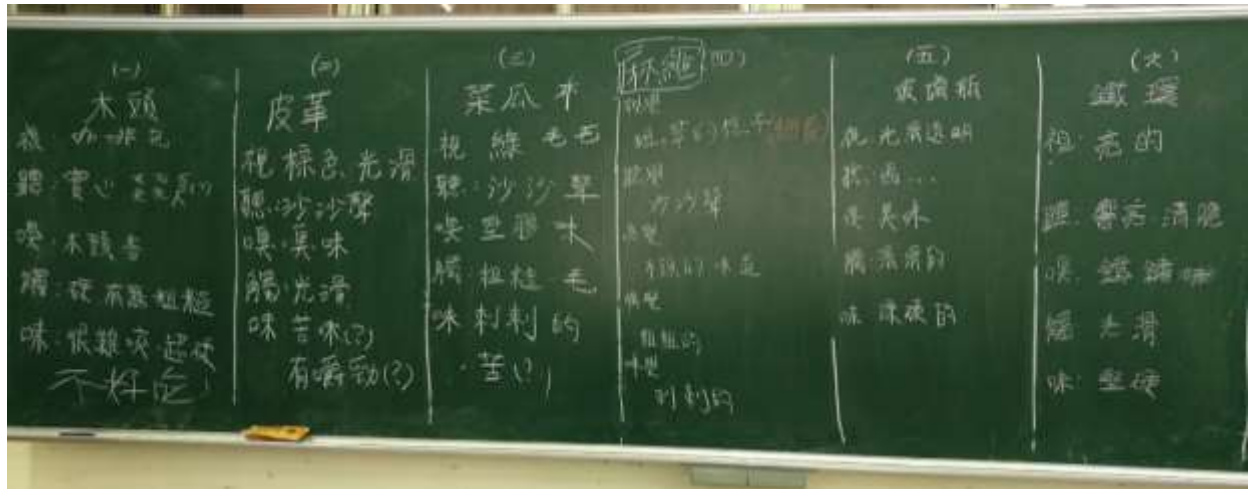 (一)
木頭
視:
聽:實心
嗅:木頭香
觸:硬 粗糙
味:很難咬 超硬
不好吃!
(二)
皮革
視 棕色 光滑
聽:沙沙聲
嗅:臭味
觸:光滑
味 苦味(?)
有嚼勁(?)
(三)
菜瓜布
視 綠 毛毛
聽:沙沙聲
嗅 塑膠味
觸:粗糙 毛
味 刺刺的
·苦(?)
(四)
麻繩
視覺
聽覺
沙沙聲
嗅覺
的味道
觸覺
粗粗的
味覺
刺刺的
(五)
玻璃瓶
視:光滑透明
嗅:臭味
觸:滑滑的
味:硬的
(六)
鐵環
視:亮的
聽:聲音清脆
嗅:鐵鏽味
觸 光滑
味:堅硬